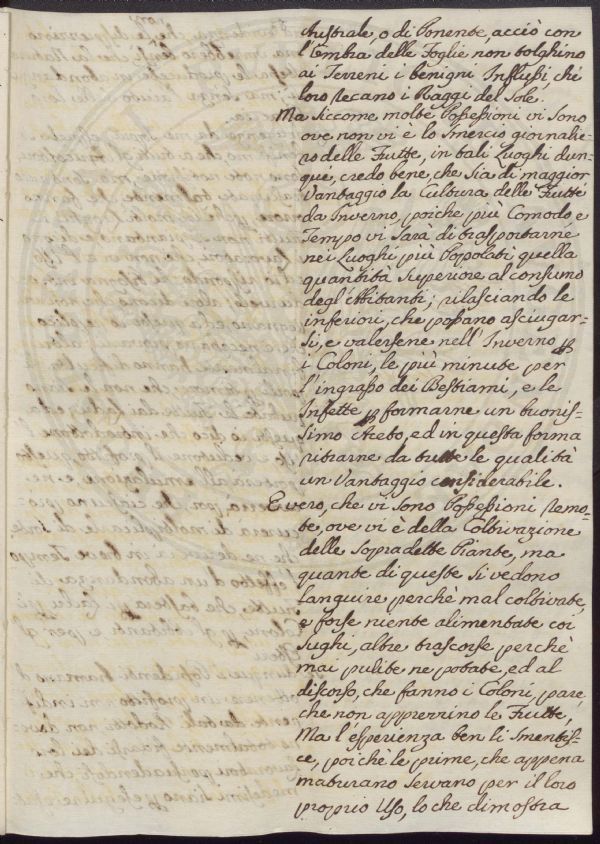 Australe, o di Ponente, acciò con
l'Ombra delle Foglie non tolghino
ai Terreni i benigni Influssi, che
loro recano i Raggi del Sole.
Ma Siccome molte Possessioni vi sono
ove non vi è lo Smercio giornalie=
ro delle Frutte, in tali Luoghi dun=
que, credo bene, che sia di maggior
Vantaggio la Cultura delle Frutte
da Inverno, poiche più Comodo e
Tempo vi sarà di trasportarne
nei Luoghi più Popolati quella
quantità Superiore al consumo
degl'Abitanti; rilasciando le
inferiori, che possano asciugar=
si, e valersene nell'Inverno p
i Coloni, le più minute per
l'ingrasso dei Bestiami, e le
Infette p formarne un buonis=
simo Aceto, ed in questa forma
ritrarne da tutte le qualità
un Vantaggio considerabile.
E vero, che vi sono Possessioni remo=
te, ove vi è della Coltivazione
delle sopradette Piante, ma
quante di queste si vedono
languire perchè mal coltivate,
e forse niente alimentate coi
sughi, altre trascorse perchè
mai pulite ne potate, ed al
discorso, che fanno i Coloni, pare
che non apprezzino le Frutte,
Ma l'esperienza ben li smentis=
ce, poichè le prime, che appena
maturano servano per il loro
proprio Uso, lo che dimostra